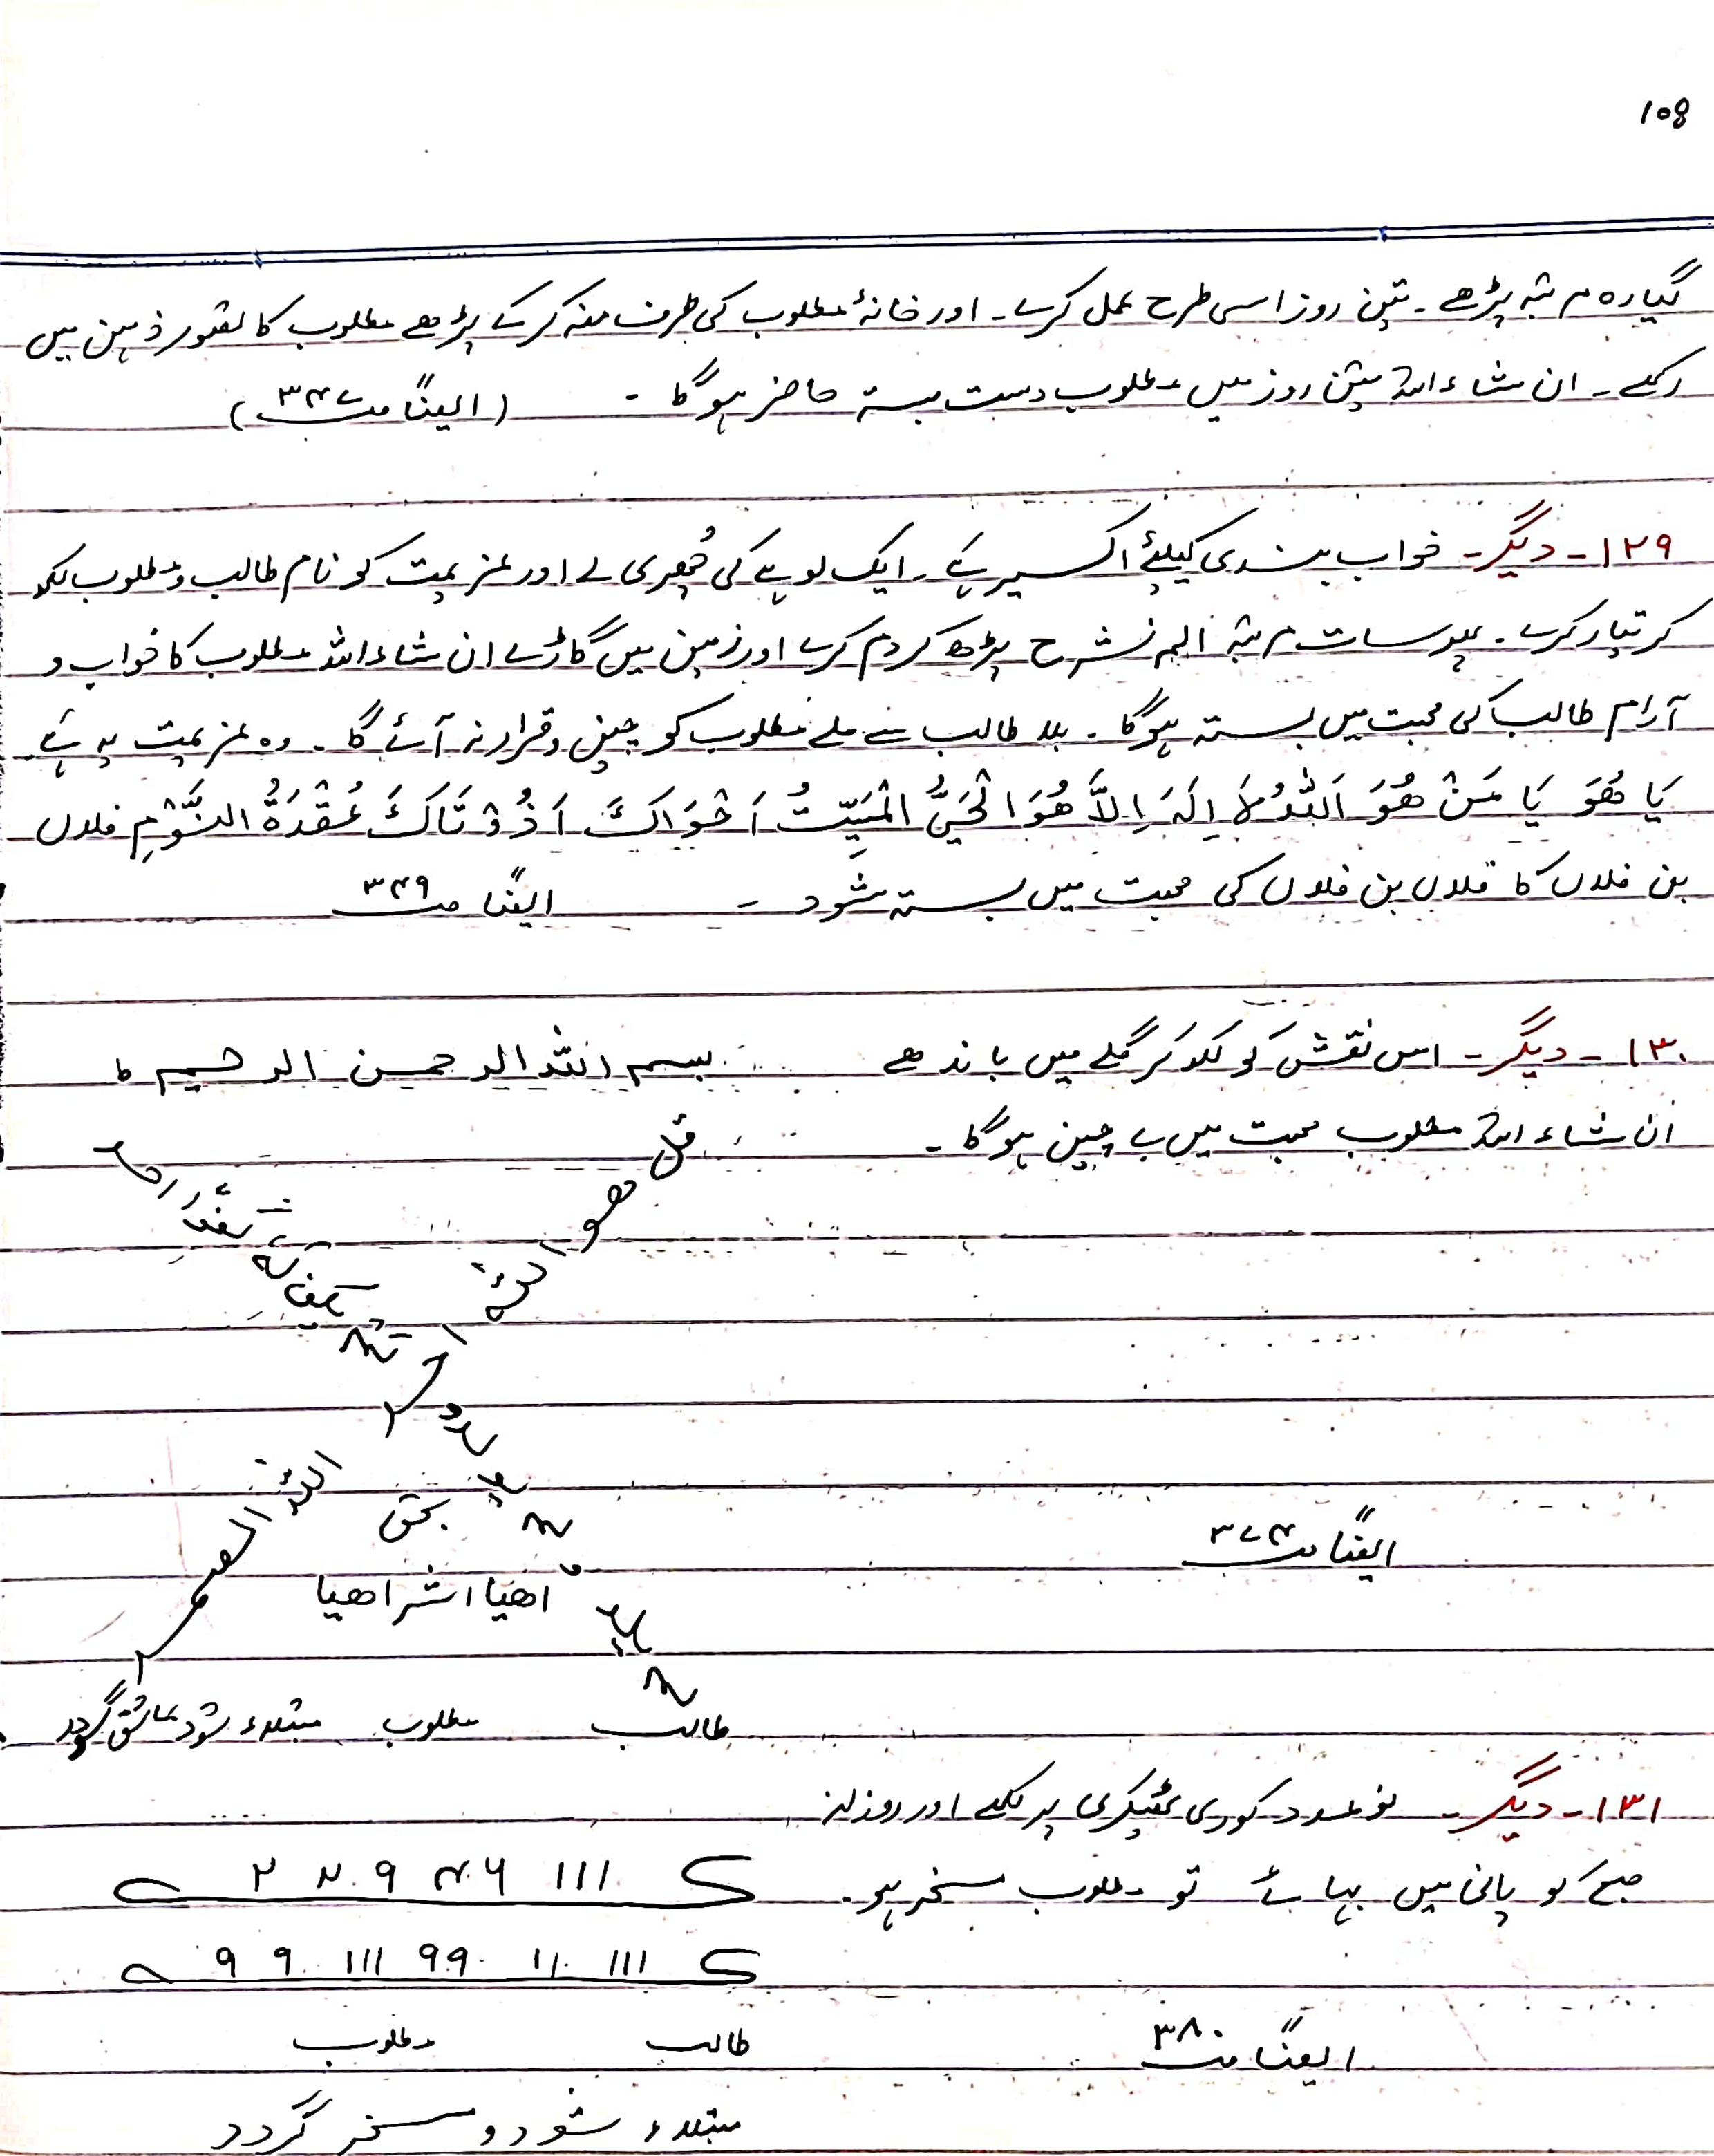 108
گیارہ مرتبہ پڑھے۔ تین روز اسی طرح عمل کرے۔ اور خانۂ مطلوب کی طرف منہ کرکے پڑھے مطلوب کا تصور ذہن میں
رکھے۔ ان شاء اللہ تین روز میں مطلوب دست بستہ حاضر ہوگا ۔ (ایضًا ص۳۴۷)
۱۲۹۔ دیگر۔ خواب بندی کیلئے اکسیر ہے۔ ایک لوہے کی چُھری لے اور عزیمت کو نام طالب و مطلوب لکھ
کر تیار کرے۔ پھر سات مرتبہ الم نشرح پڑھ کر دم کرے اور زمین میں گاڑے ان شاء اللہ مطلوب کا خواب و
آرام طالب کی محبت میں بستہ ہوگا۔ بلا طالب سے ملے مطلوب کو چین و قرار نہ آئے گا۔ وہ عزیمت یہ ہے
يَا هُوَ يَا مَنْ هُوَ اَللّٰهُ لَا اِلٰهَ اِلَّا هُوَ الْحَيُّ الْمَيِّتُ اَخْوَاكَ اَذُوْتَاكَ عُقْدَةُ النَّوْمِ فلاں
بن فلاں کا فلاں بن فلاں کی محبت میں بستہ شود ۔ ایضًا ص۳۴۹
۱۳۰۔ دیگر۔ اس نقش کو لکھ کر گلے میں باندھے بسم اللہ الرحمن الرحیم ط
ان شاء اللہ مطلوب محبت میں بے چین ہوگا۔ قل
هو
اللہ
احد
اللہ الصمد
بحق
اھیا اشراھیا
ایضًا ص۳۷۴
طالب مطلوب مبتلاء شود عاشق گردد
۱۳۱۔ دیگر۔ نو عدد کوری ٹھیکری پر لکھے اور روزانہ
صبح کو پانی میں بہائے تو مطلوب مسخر ہو۔
طالب مطلوب
ایضًا ص۳۸۰
مبتلاء شود و مسخر گردد